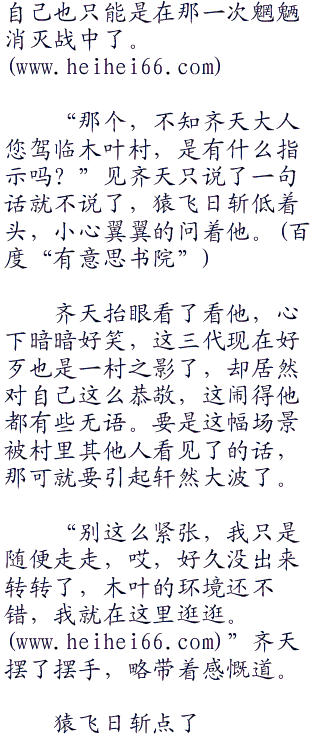 自己也只能是在那一次魍魉
消灭战中了。
(www.heihei66.com)
“那个，不知齐天大人
您驾临木叶村，是有什么指
示吗？”见齐天只说了一句
话就不说了，猿飞日斩低着
头，小心翼翼的问着他。(百
度“有意思书院”)
齐天抬眼看了看他，心
下暗暗好笑，这三代现在好
歹也是一村之影了，却居然
对自己这么恭敬，这闹得他
都有些无语。要是这幅场景
被村里其他人看见了的话，
那可就要引起轩然大波了。
“别这么紧张，我只是
随便走走，哎，好久没出来
转转了，木叶的环境还不
错，我就在这里逛逛。
(www.heihei66.com)”齐天
摆了摆手，略带着感慨道。
猿飞日斩点了